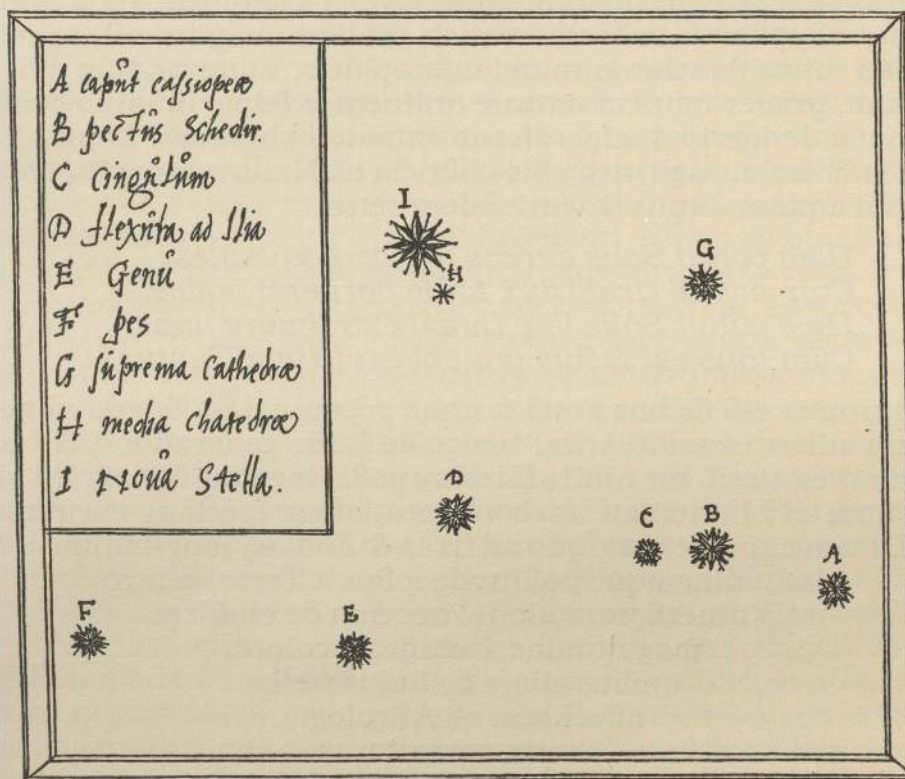 A Capůt cassiopeæ
B pectůs Schedir.
C Cingůlům
D flexůra ad Ilia
E Genů
F pes
G suprema Cathedræ
H media Chatedræ
I Noůa Stella.
I
H
G
D
C
B
A
F
E